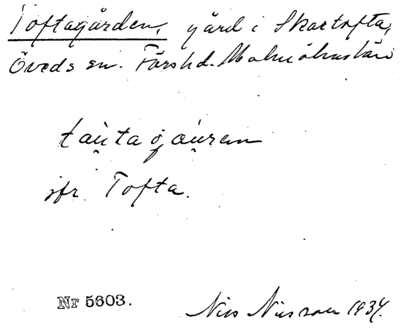 Toftagården, gård i Skartofta,
Öveds sn. Färs hd. Malmöhus län
ta̤u̯ta gå̤u̯ren
jfr. Tofta.
Nr 5603.
Nils Nilsson 1934.